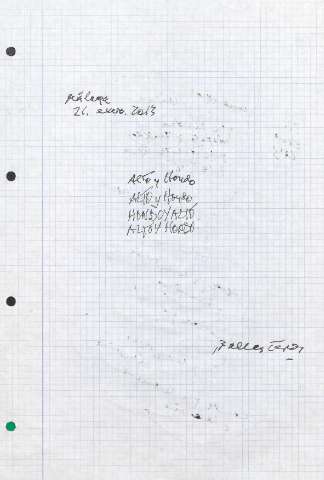 Málaga
21. enero. 2013
Alto y Hondo
Alto y Hondo
HONDO Y ALTO
ALTO Y HONDO